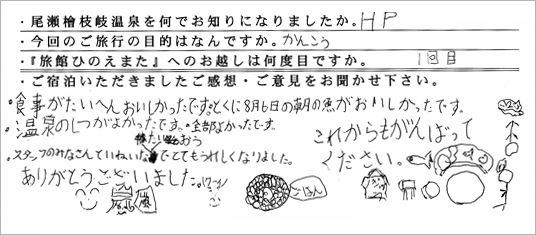 ・尾瀬檜枝岐温泉を何でお知りになりましたか。HP
・今回のご旅行の目的はなんですか。かんこう
・『旅館ひのえまた』へのお越しは何度目ですか。1回目
・ご宿泊いただきましたご感想・ご意見をお聞かせ下さい。
・食事がたいへんおいしかったです。とくに8月6日の朝の魚がおいしかったです。
・温泉のしつがよかったです。・全部よかったです。
・スタッフのみなさんていねいなたいおうでとてもうれしくなりました。
ありがとうございました。
これからもがんばって
ください。
ごはん